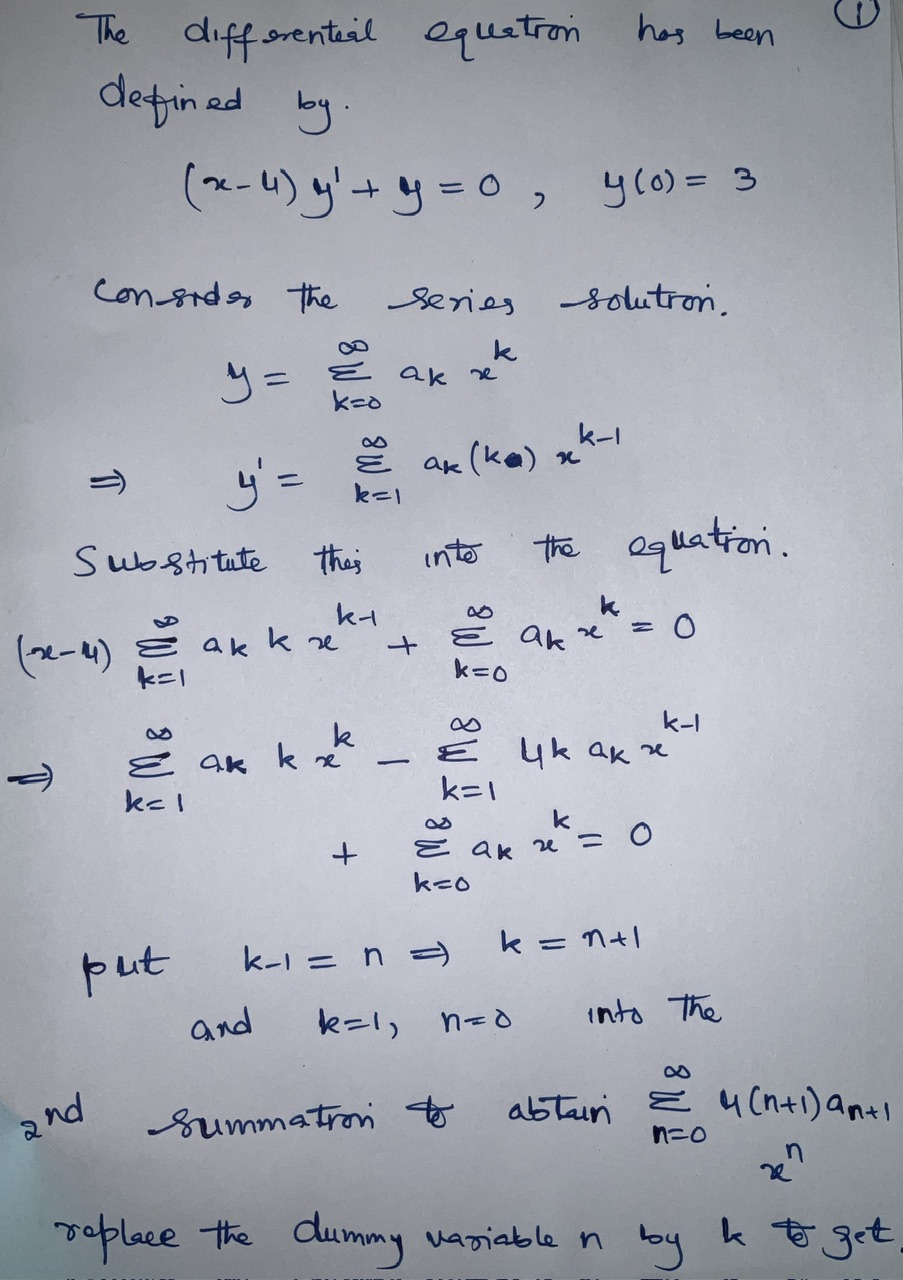 ①
The differential equation has been
defined by.
(x-4) y' + y = 0 , y(0) = 3
Consider the series solution.
y = ∞ Σ k=0 ak x^k
⇒ y' = ∞ Σ k=1 ak (k) x^k-1
Substitute this into the equation.
(x-4) ∞ Σ k=1 ak k x^k-1 + ∞ Σ k=0 ak x^k = 0
⇒ ∞ Σ k=1 ak k x^k - ∞ Σ k=1 4k ak x^k-1
+ ∞ Σ k=0 ak x^k = 0
put k-1 = n ⇒ k = n+1
and k=1, n=0 into the
2nd summation to obtain ∞ Σ n=0 4(n+1) an+1
x^n
replace the dummy variable n by k to get.